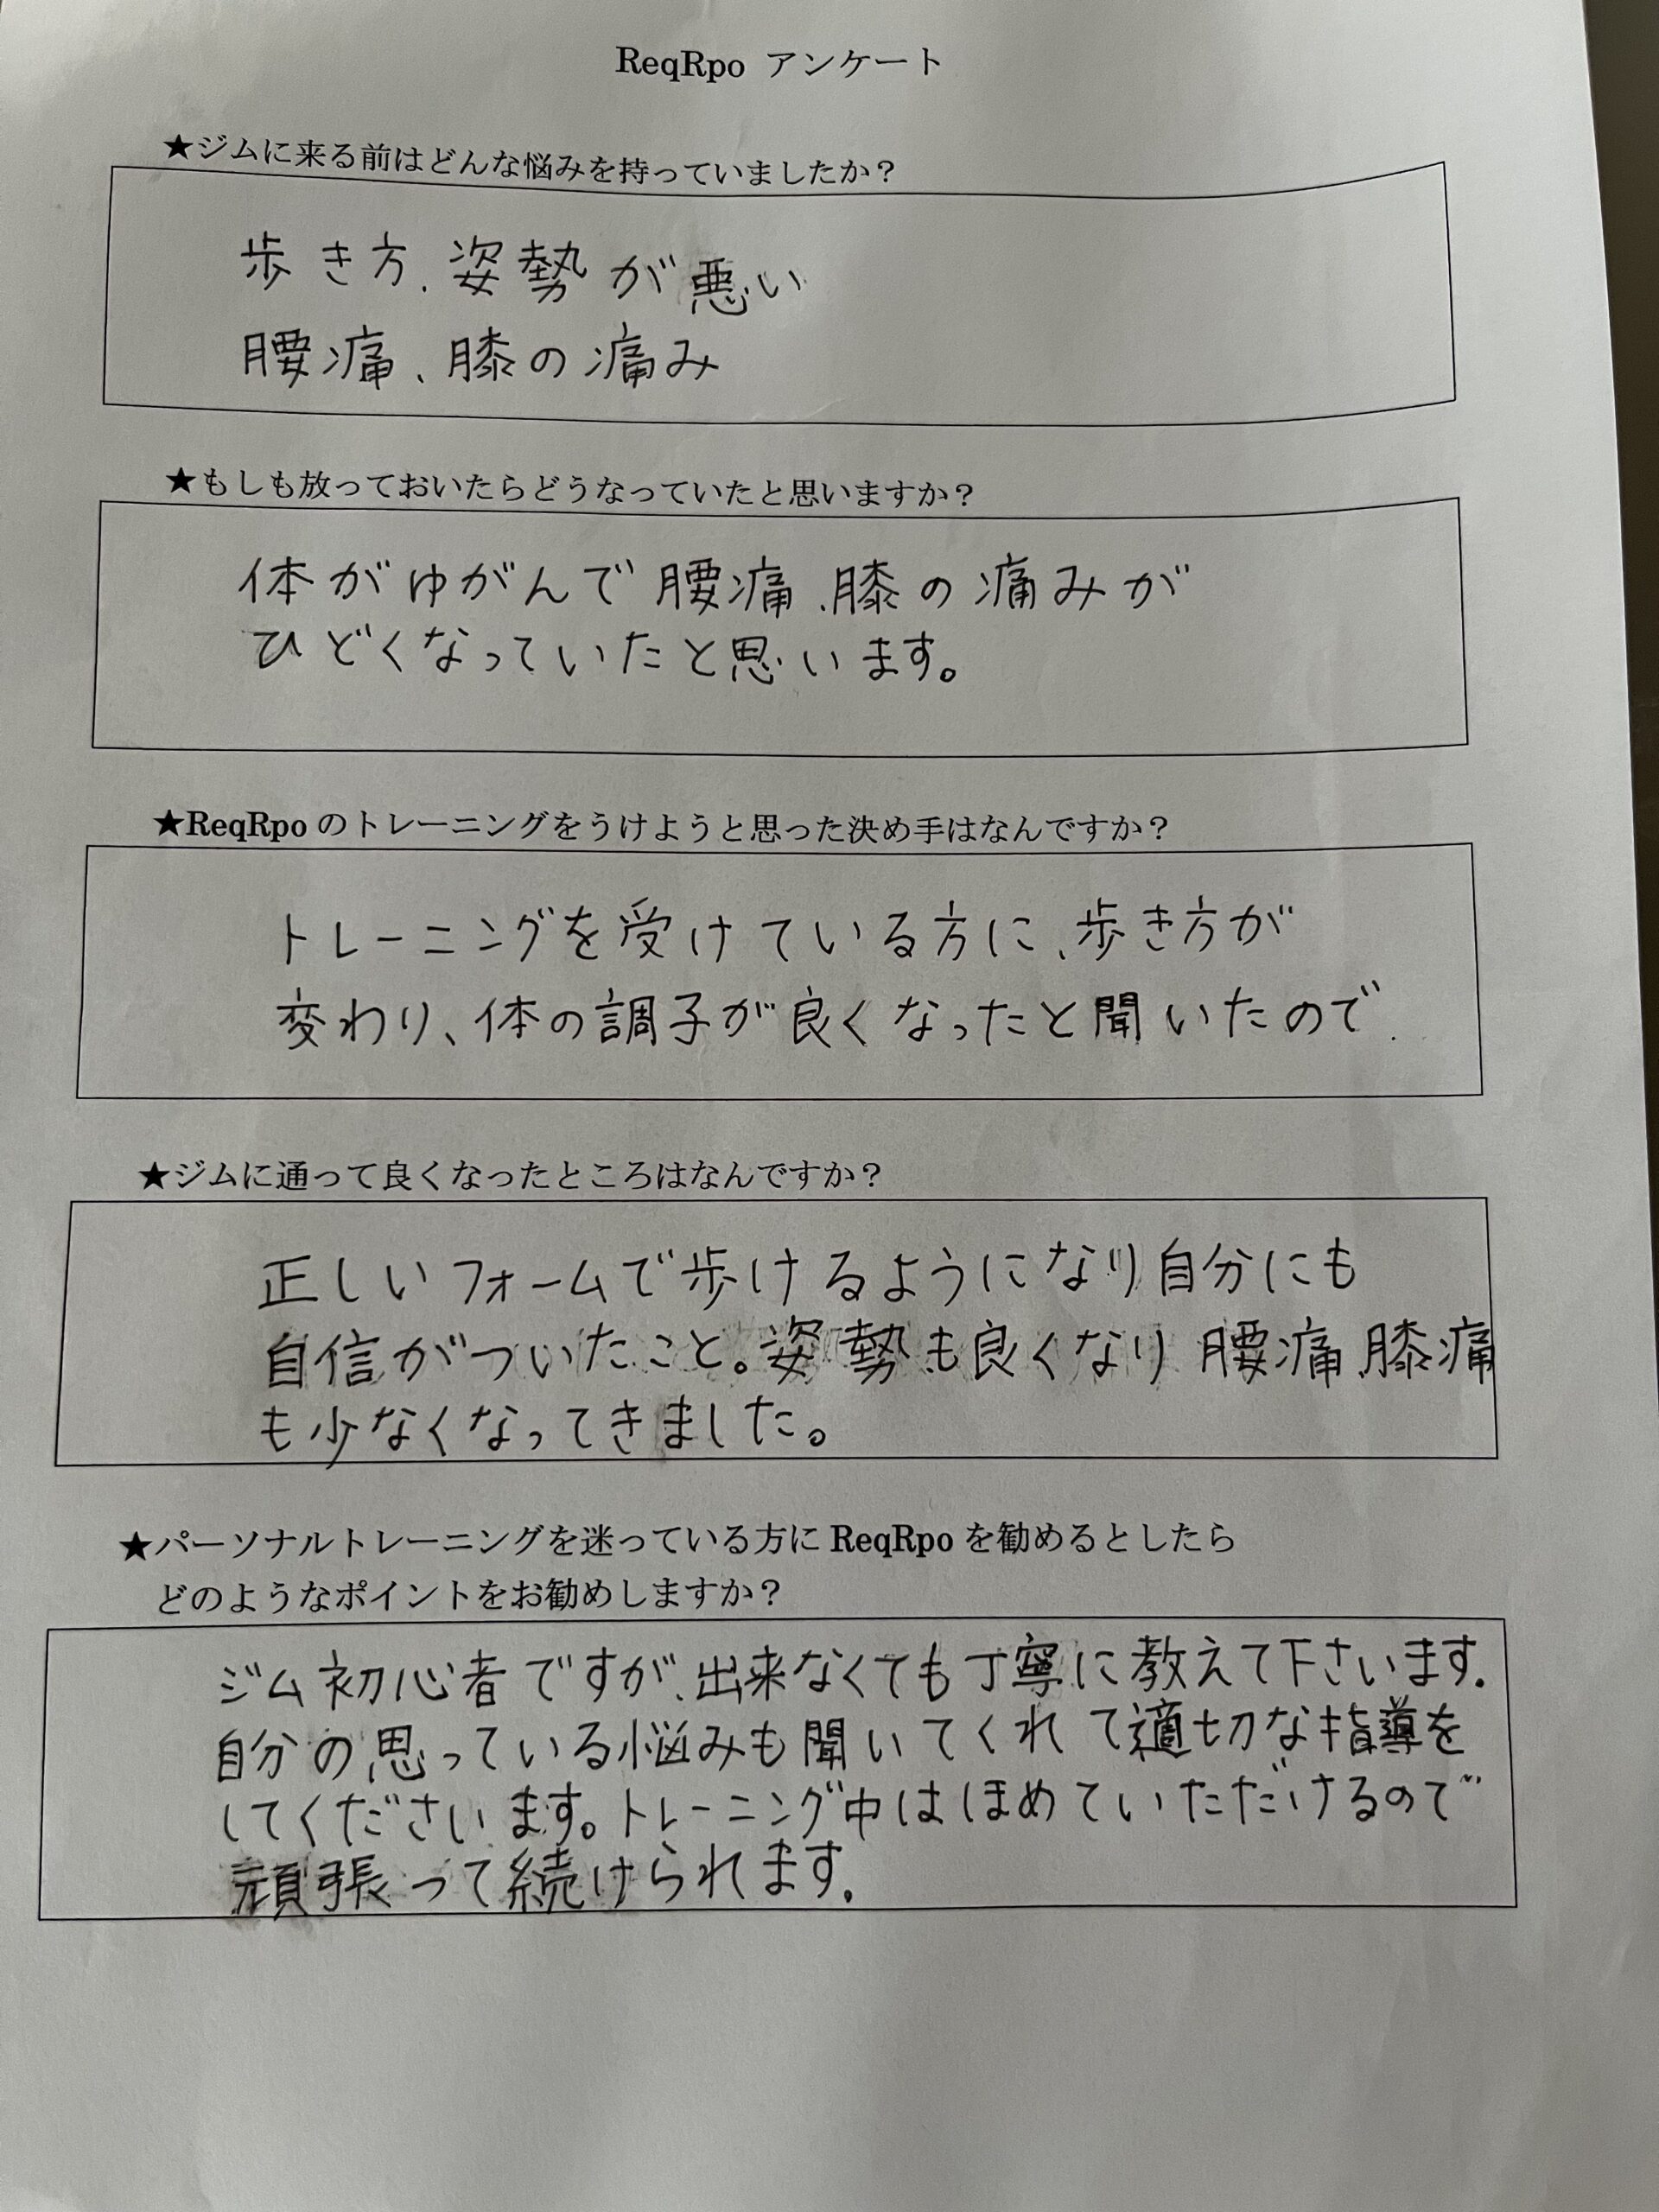 ReqRpo アンケート
★ジムに来る前はどんな悩みを持っていましたか？
歩き方、姿勢が悪い
腰痛、膝の痛み
★もしも放っておいたらどうなっていたと思いますか？
体がゆがんで腰痛、膝の痛みが
ひどくなっていたと思います。
★ReqRpoのトレーニングをうけようと思った決め手はなんですか？
トレーニングを受けている方に、歩き方が
変わり、体の調子が良くなったと聞いたので
★ジムに通って良くなったところはなんですか？
正しいフォームで歩けるようになり自分にも
自信がついたこと。姿勢も良くなり腰痛、膝痛
も少なくなってきました。
★パーソナルトレーニングを迷っている方にReqRpoを勧めるとしたら
どのようなポイントをお勧めしますか？
ジム初心者ですが、出来なくても丁寧に教えて下さいます。
自分の思っている悩みも聞いてくれて適切な指導を
してくださいます。トレーニング中はほめていただけるので
頑張って続けられます。